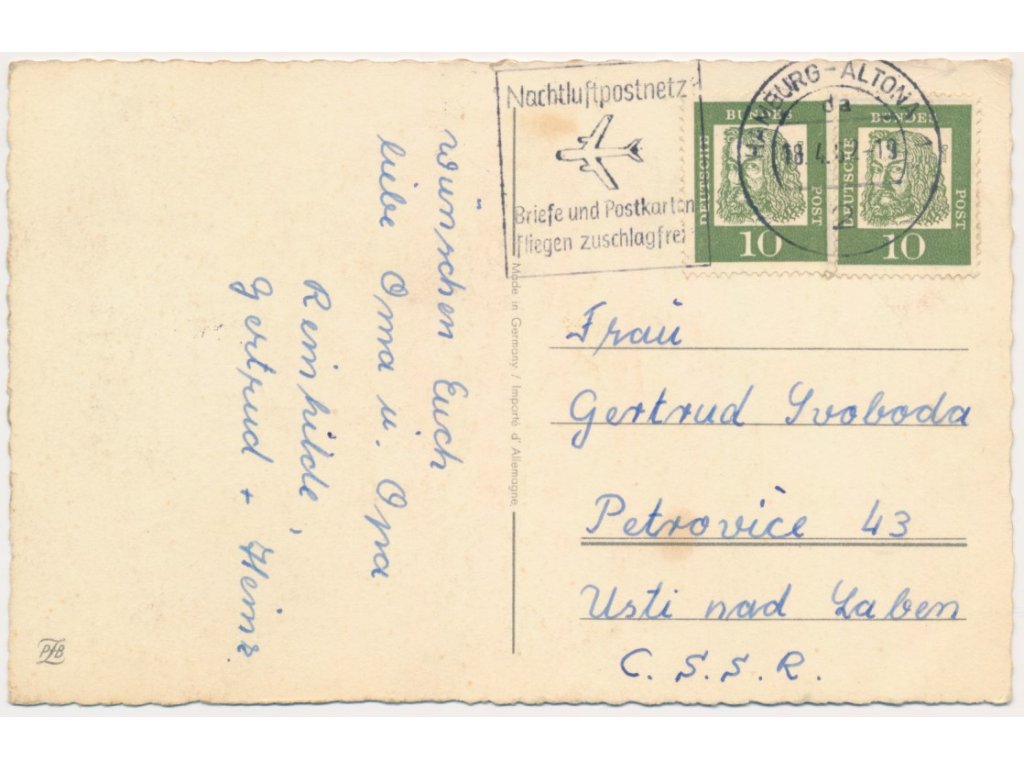 wünschen Euch
liebe Oma u. Opa
Reinhilde,
Gertrud + Heinz
PFB
Made in Germany / Importé d'Allemagne
Nachtluftpostnetz
Briefe und Postkarten
fliegen zuschlagfrei
HAMBURG-ALTONA
da
18.4. -19
2
DEUTSCHE BUNDES POST
10
DEUTSCHE BUNDES POST
10
Frau
Gertrud Svoboda
Petrovice 43
Usti nad Laben
C.S.S.R.